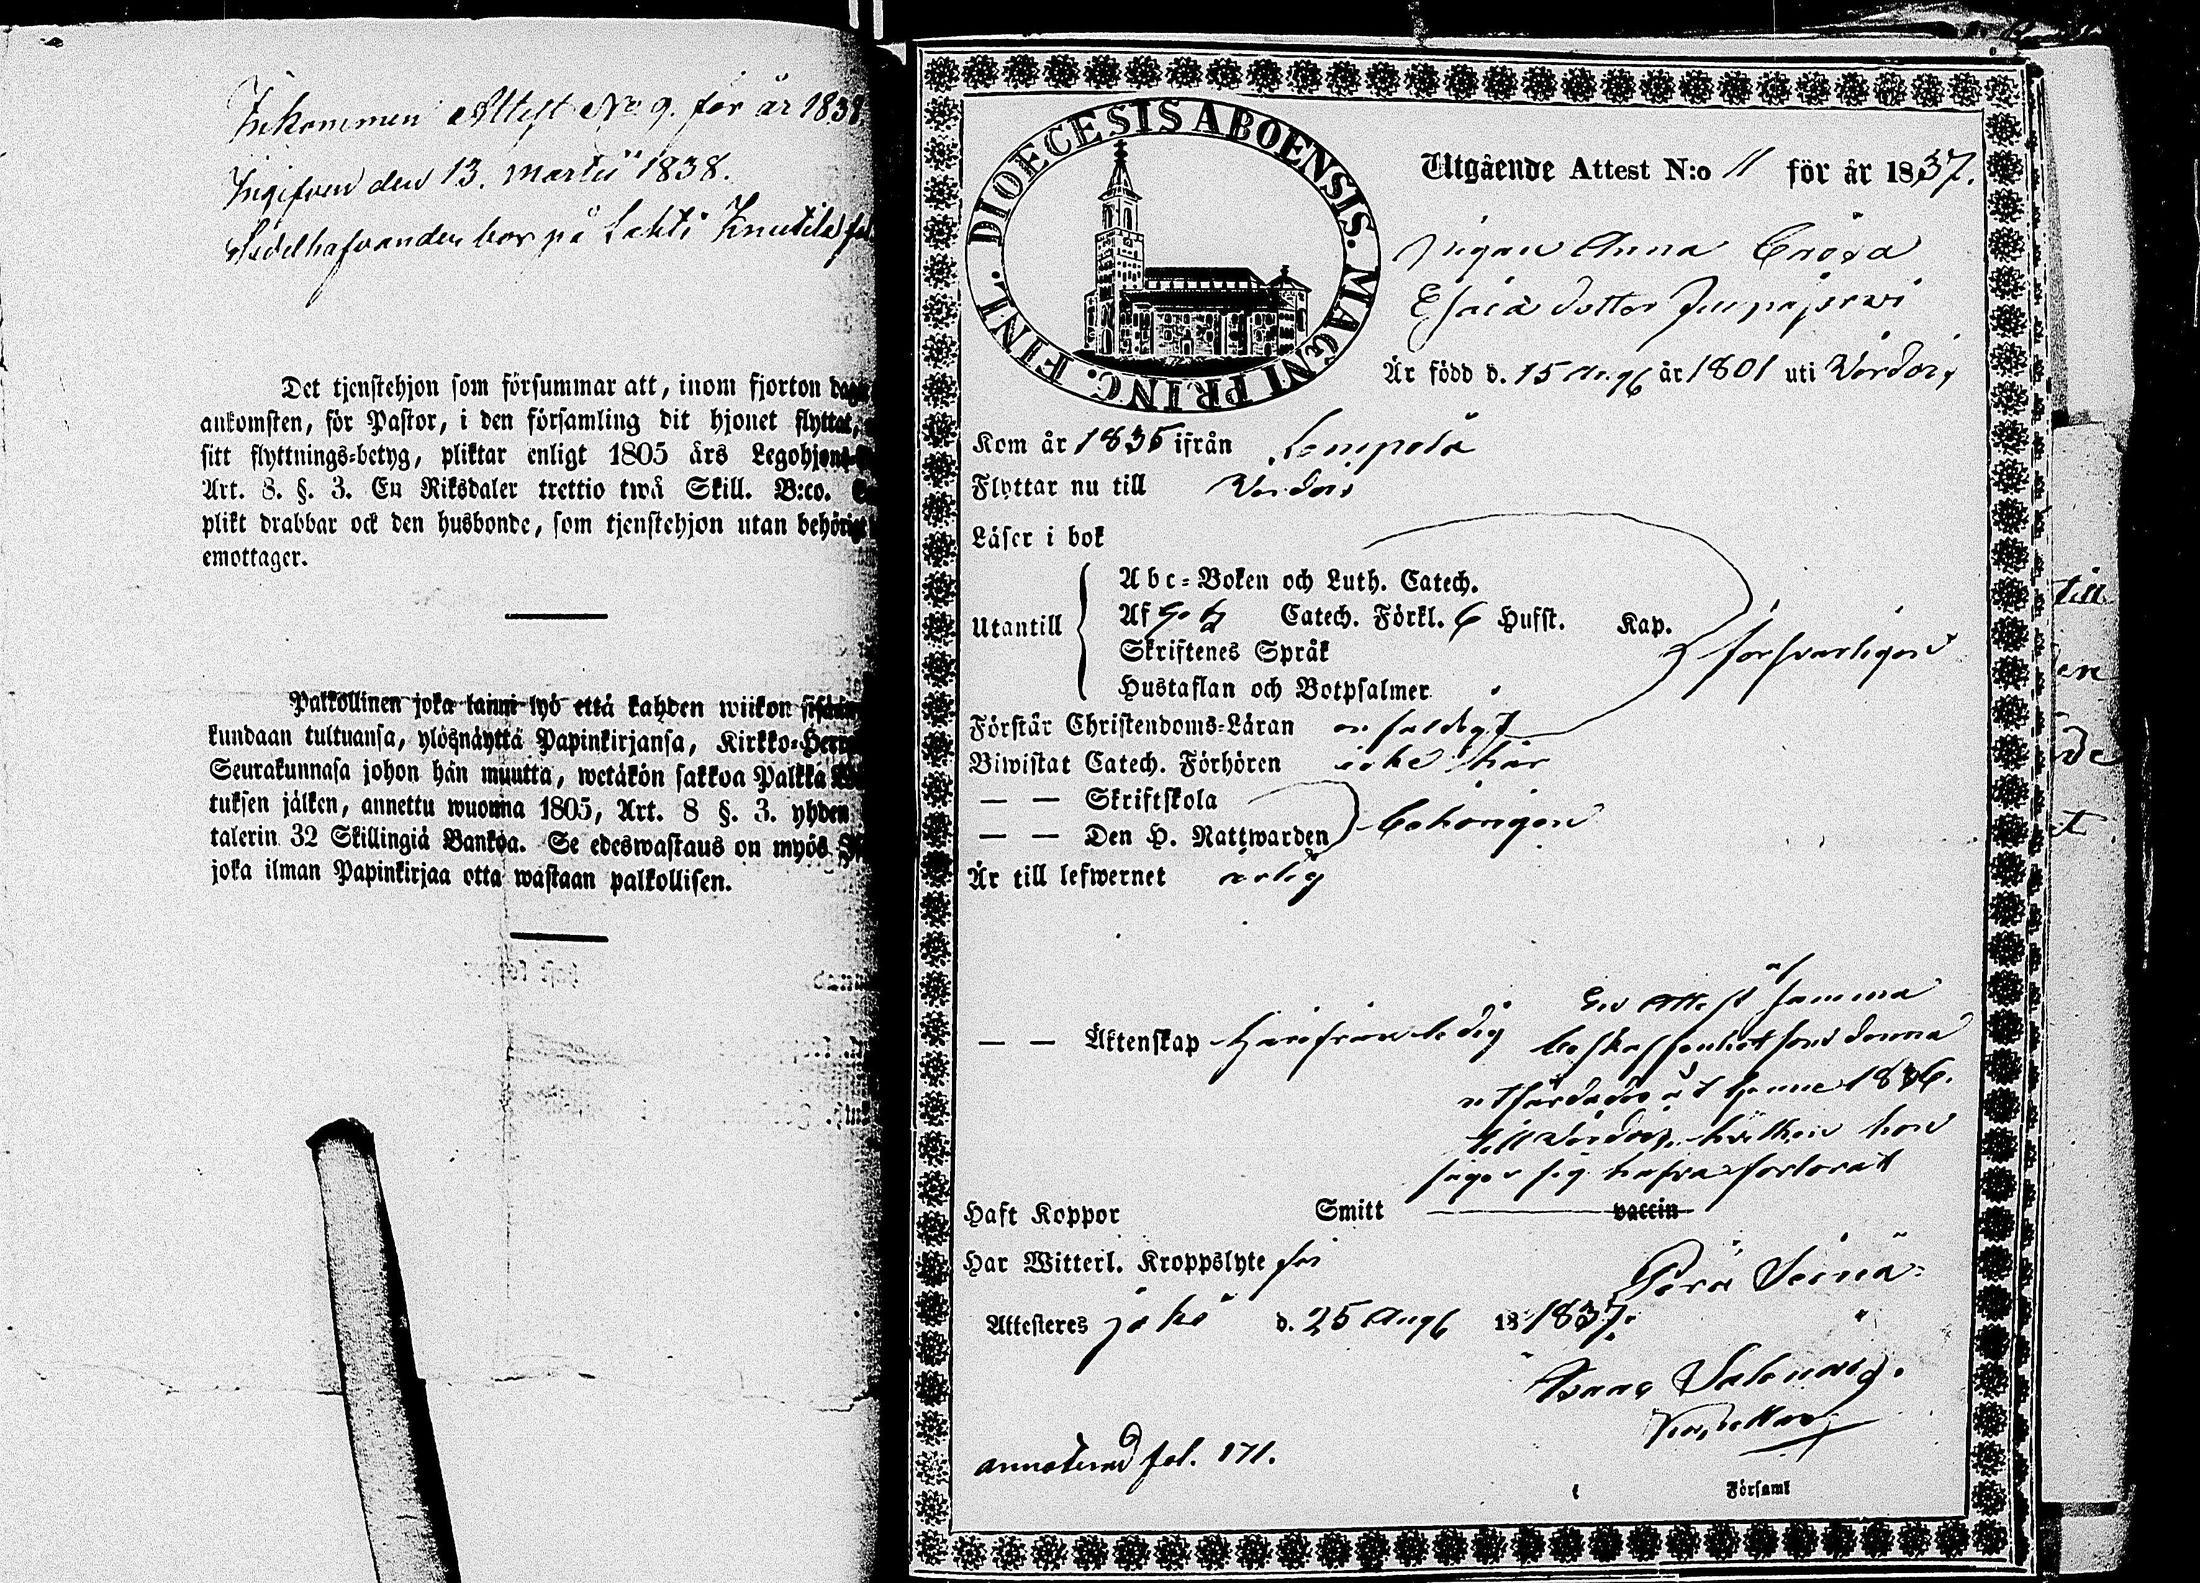 Inkommen Attest No 9. för år 1838
Ingifven den 13. Martii 1838.
bor på Lahti Knutila
Det tjenstehjon som försummar att, inom fjorton daga
ankomsten, för Pastor, i den församling dit hjonet flyttat,
sitt flyttnings-betyg, pliktar enligt 1805 års Legohjons
Art. 8. §. 3. En Riksdaler trettio twå Skill. B:co.
plikt drabbar ock den husbonde, som tjenstehjon utan behörigt
emottager.
Palkollinen joka laimi-lyö että kahden wiikon sisään
kundaan tultuansa, ylösnäyttä Papinkirjansa, Kirkko-Herra
Seurakunnasa johon hän muutta, wetäkön sakkoa Palkka
tuksen jälken, annettu wuonna 1805, Art. 8 §. 3. yhden
talerin 32 Skillingiä Bankoa. Se edeswastaus on myös
joka ilman Papinkirjaa otta wastaan palkollisen.
DIOECESIS ABOENSIS. MAGNI PRINC. FINL.
Utgående Attest N:o 11 för år 1837.
Pigan Anna Cajsa
Esaia dotter
Är född d. 15 Aug år 1801 uti Wördois
Kom år 1835 ifrån Lempelä
Flyttar nu till Wördois
Läser i bok
Utantill
Abc-Boken och Luth. Catech.
Af Catech. Förkl. 6 Hufst. Kap.
Skriftenes Språk
Hustaflan och Botpsalmer
försvarligen
Förstår Christendoms-Läran enfaldigt
Biwistat Catech. Förhören icke här
— — Skriftskola
— — Den H. Nattwarden behörigen
Är till lefwernet ärlig
— — Äktenskap härifrån ledig
En Attest af samma
beskaffenhet som denna
utfärdades åt henne 1836.
till Wördois, hvilken hon
säger sig hafva förlorat
Haft Koppor Smitt vaccin
Har Witterl. Kroppslyte
Attesteres d. 25 Aug 18 1837.
Isaac
annoterad fol. 171.
Församl